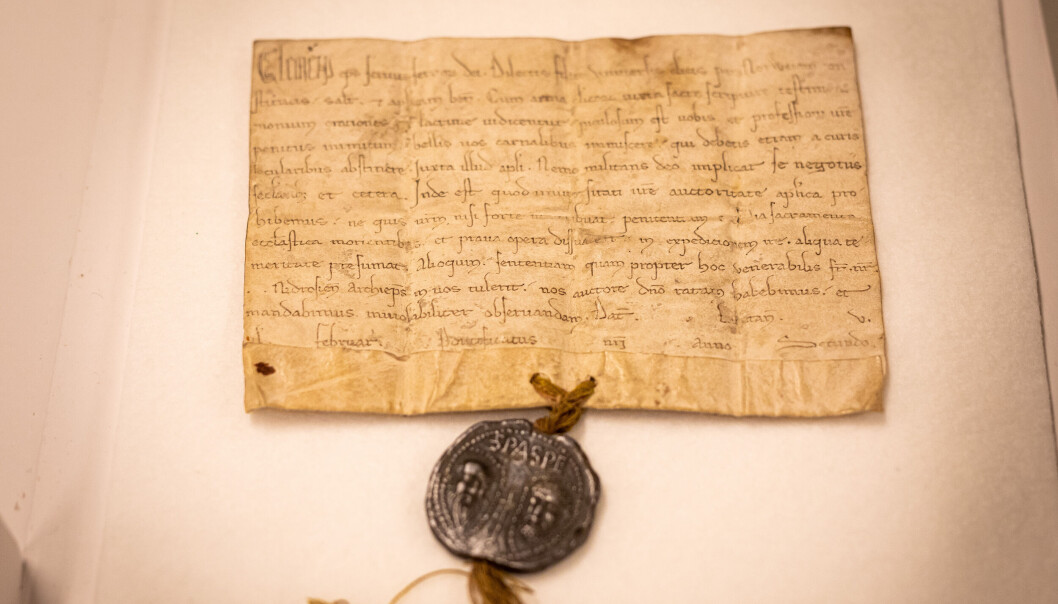 Celestin' eps servus servorum dei. Dilectis filiis universis clericis per Norweiam con
stitutis. salt. & aplicam ben. Cum arma clericorum iuxta sacre scripture testimo
monium orationes et lacrime iudicentur. prohibitum est vobis et professioni vre
penitus inimicum. bellis vos carnalibus inmiscere. qui debetis etiam a curis
secularibus abstinere. Iuxta illud apli. Nemo militans deo implicat se negotiis
seclarib; et cetera. Inde est quod universitati vre auctoritate aplica pro
hibemus. ne quis vrm. nisi forte ut tribuat penitentiam & alia sacramenta
ecclastica morientibus. et prava opera dissuadeat. in expeditionem ire. aliqua te
meritate presumat. Alioquin. sententiam quam propter hoc venerabilis fr. nr.
Nidrosien Archieps in vos tulerit. nos auctore dno ratam habebimus. et
mandabimus inviolabiliter observandam. Dat. Lateran. v.
kl. februar. Pontificatus nri Anno Secundo.
SPASPE